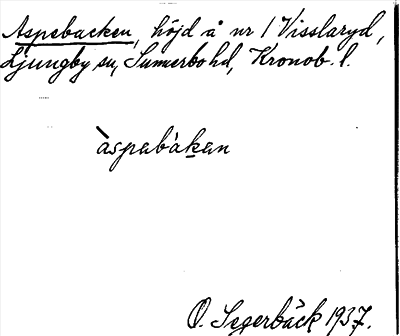 Aspebacken, höjd å nr 1 Visslaryd,
Ljungby sn, Sunnerbo hd, Kronob. l.
àspabàkan
O. Segerbäck 1937.